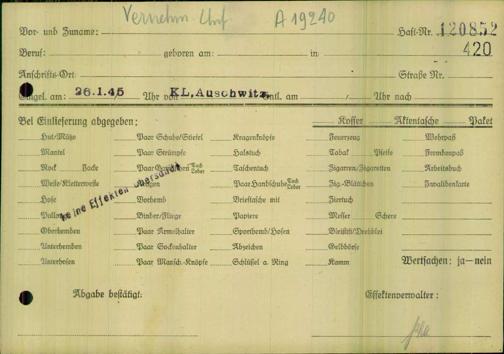 A 19240
Vor- und Zuname: Haft-Nr. 120852
Beruf: geboren am: in 420
Anschrifts-Ort: Straße Nr.
Eingel. am 26.1.45 Uhr von KL. Auschwitz Entl. am Uhr nach
Bei Einlieferung abgegeben: Koffer Aktentasche Paket
Hut/Mütze Paar Schuhe/Stiefel Kragenknöpfe Feuerzeug Wehrpaß
Mantel Paar Strümpfe Halstuch Tabak Pfeife Fremdenpaß
Rock Jacke Paar Gamaschen Tuch Leder Taschentuch Zigarren/Zigaretten Arbeitsbuch
Weste/Kletterweste Kragen Paar Handschuhe Tuch Leder Zig-Blättchen Invalidenkarte
Hose Vorhemd Brieftasche mit Ziertuch
Pullover Binder/Fliege Papiere Messer Schere
Oberhemden Paar Ärmelhalter Sporthemd/Hosen Bleistift/Drehblei
Unterhemden Paar Sockenhalter Abzeichen Geldbörse
Unterhosen Paar Mansch.-Knöpfe Schlüssel a. Ring Kamm Wertsachen: ja—nein
keine Effekten
Abgabe bestätigt: Effektenverwalter: